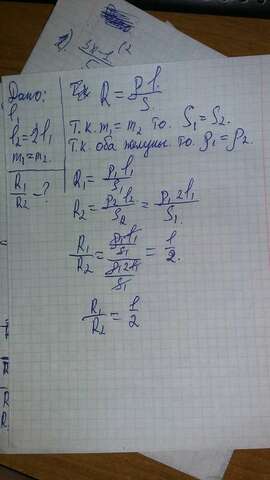 2) 5x-1 (2
Дано:
l₁
l₂=2l₁
m₁=m₂
R₁/R₂ - ?
R = ρl/S
Т.к. m₁=m₂ то. S₁=S₂.
Т.к. оба то. ρ₁=ρ₂.
R₁ = ρ₁l₁/S₁
R₂ = ρ₂l₂/S₂ = ρ₁2l₁/S₁
R₁/R₂ = (ρ₁l₁/S₁)/(ρ₁2l₁/S₁) = 1/2.
R₁/R₂ = 1/2